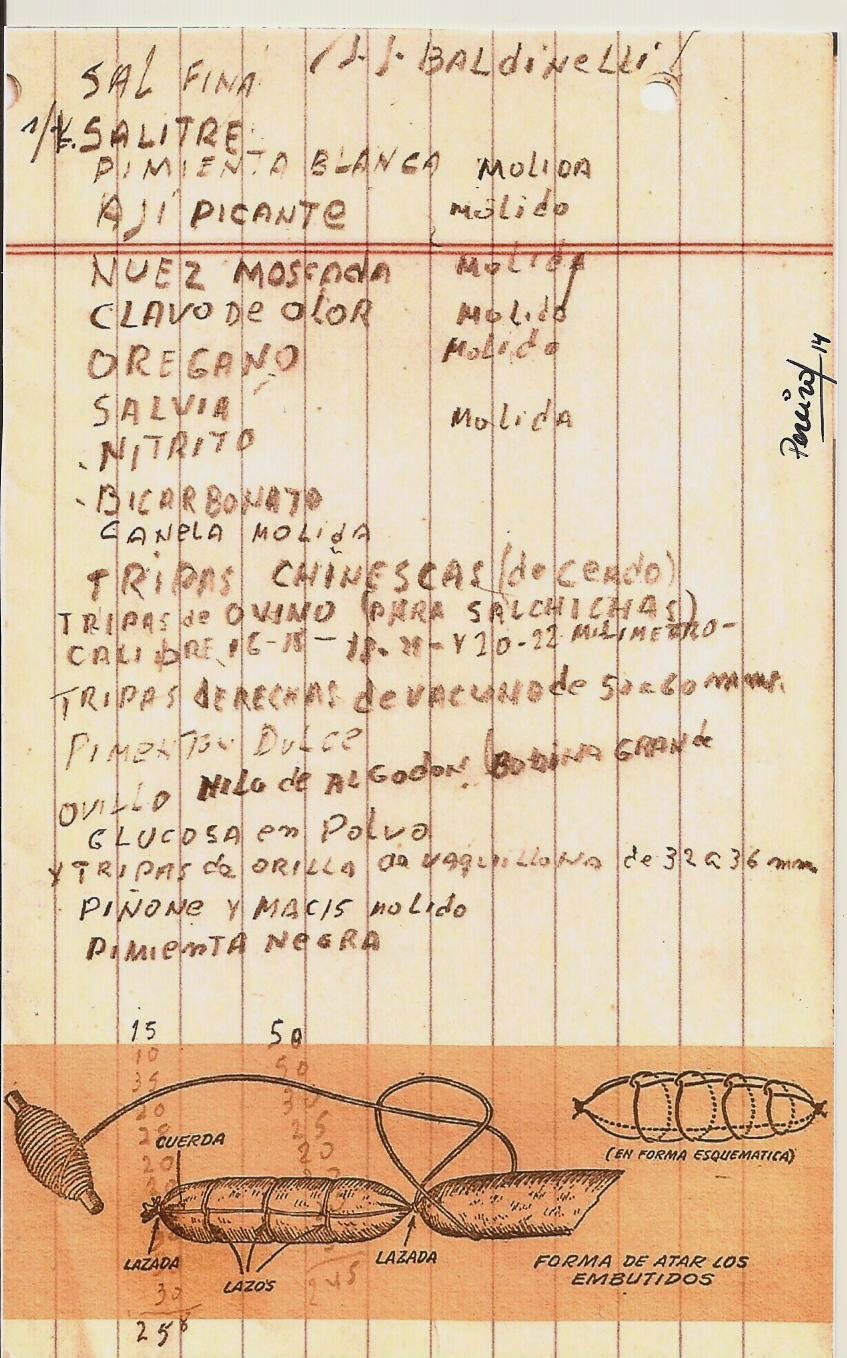 J. J. BALdiNeLLi
SAL FINA
SALITRE
PIMIENTA BLANCA MOLIDA
AJI PICANTe molido
NUEZ MOSCAdA MoLidA
CLAVO De OLOR MoLido
OREGANO MoLido
SALVIA MoLidA
NITRITO
BICARBONATO
CANeLA MOLIdA
TRIPAS CHINESCAS (de CeRdO)
TRIPAS de OVINO (PARA SALCHICHAS)
CALIBRE 16-18 - 18-20 - Y 20-22 MILIMETRO-
TRIPAS deRECHAS de VACUNO de 50 a 60
PIMENTON DULCE
OVILLO HiLo de ALGODON (BOBINA GRANde
GLUCOSA en PoLvo
Y TRIPAS de ORILLA de VAQUILLONA de 32 a 36 mm.
PIÑONe Y MACIS moLido
PIMIenTA NeGRA
14
15 50
10 50
35
20 25
20
20
CUERDA
(EN FORMA ESQUEMATICA)
LAZADA
LAZOS
LAZADA
FORMA DE ATAR LOS
EMBUTIDOS
30 245
258